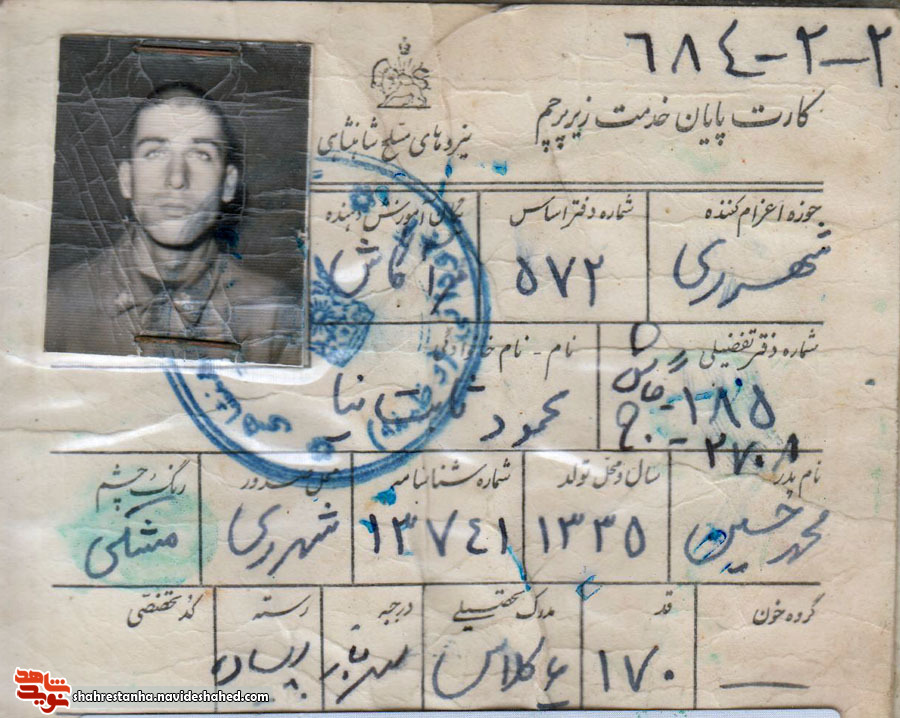 ۶۸۴-۲-۲
کارت پایان خدمت زیر پرچم
نیروهای مسلح شاهنشاهی
حوزه اعزام کننده
شماره دفتر اساس
یگان آموزش دهنده
شهرری
۵۷۲
شماره دفتر تفضیلی
نام - نام خانوادگی
۱۸۵
۲۷۰۸
محمود ثابت نیا
نام پدر
سال و محل تولد
شماره شناسنامه
محل صدور
رنگ چشم
محمد حسین
۱۳۳۵
۱۳۷۴۱
شهرری
مشکی
گروه خون
قد
مدرک تحصیلی
درجه
رسته
کد تخصصی
۱۷۰
۶ کلاس
پیاده
شاهد
نوید
shahrestanha.navideshahed.com